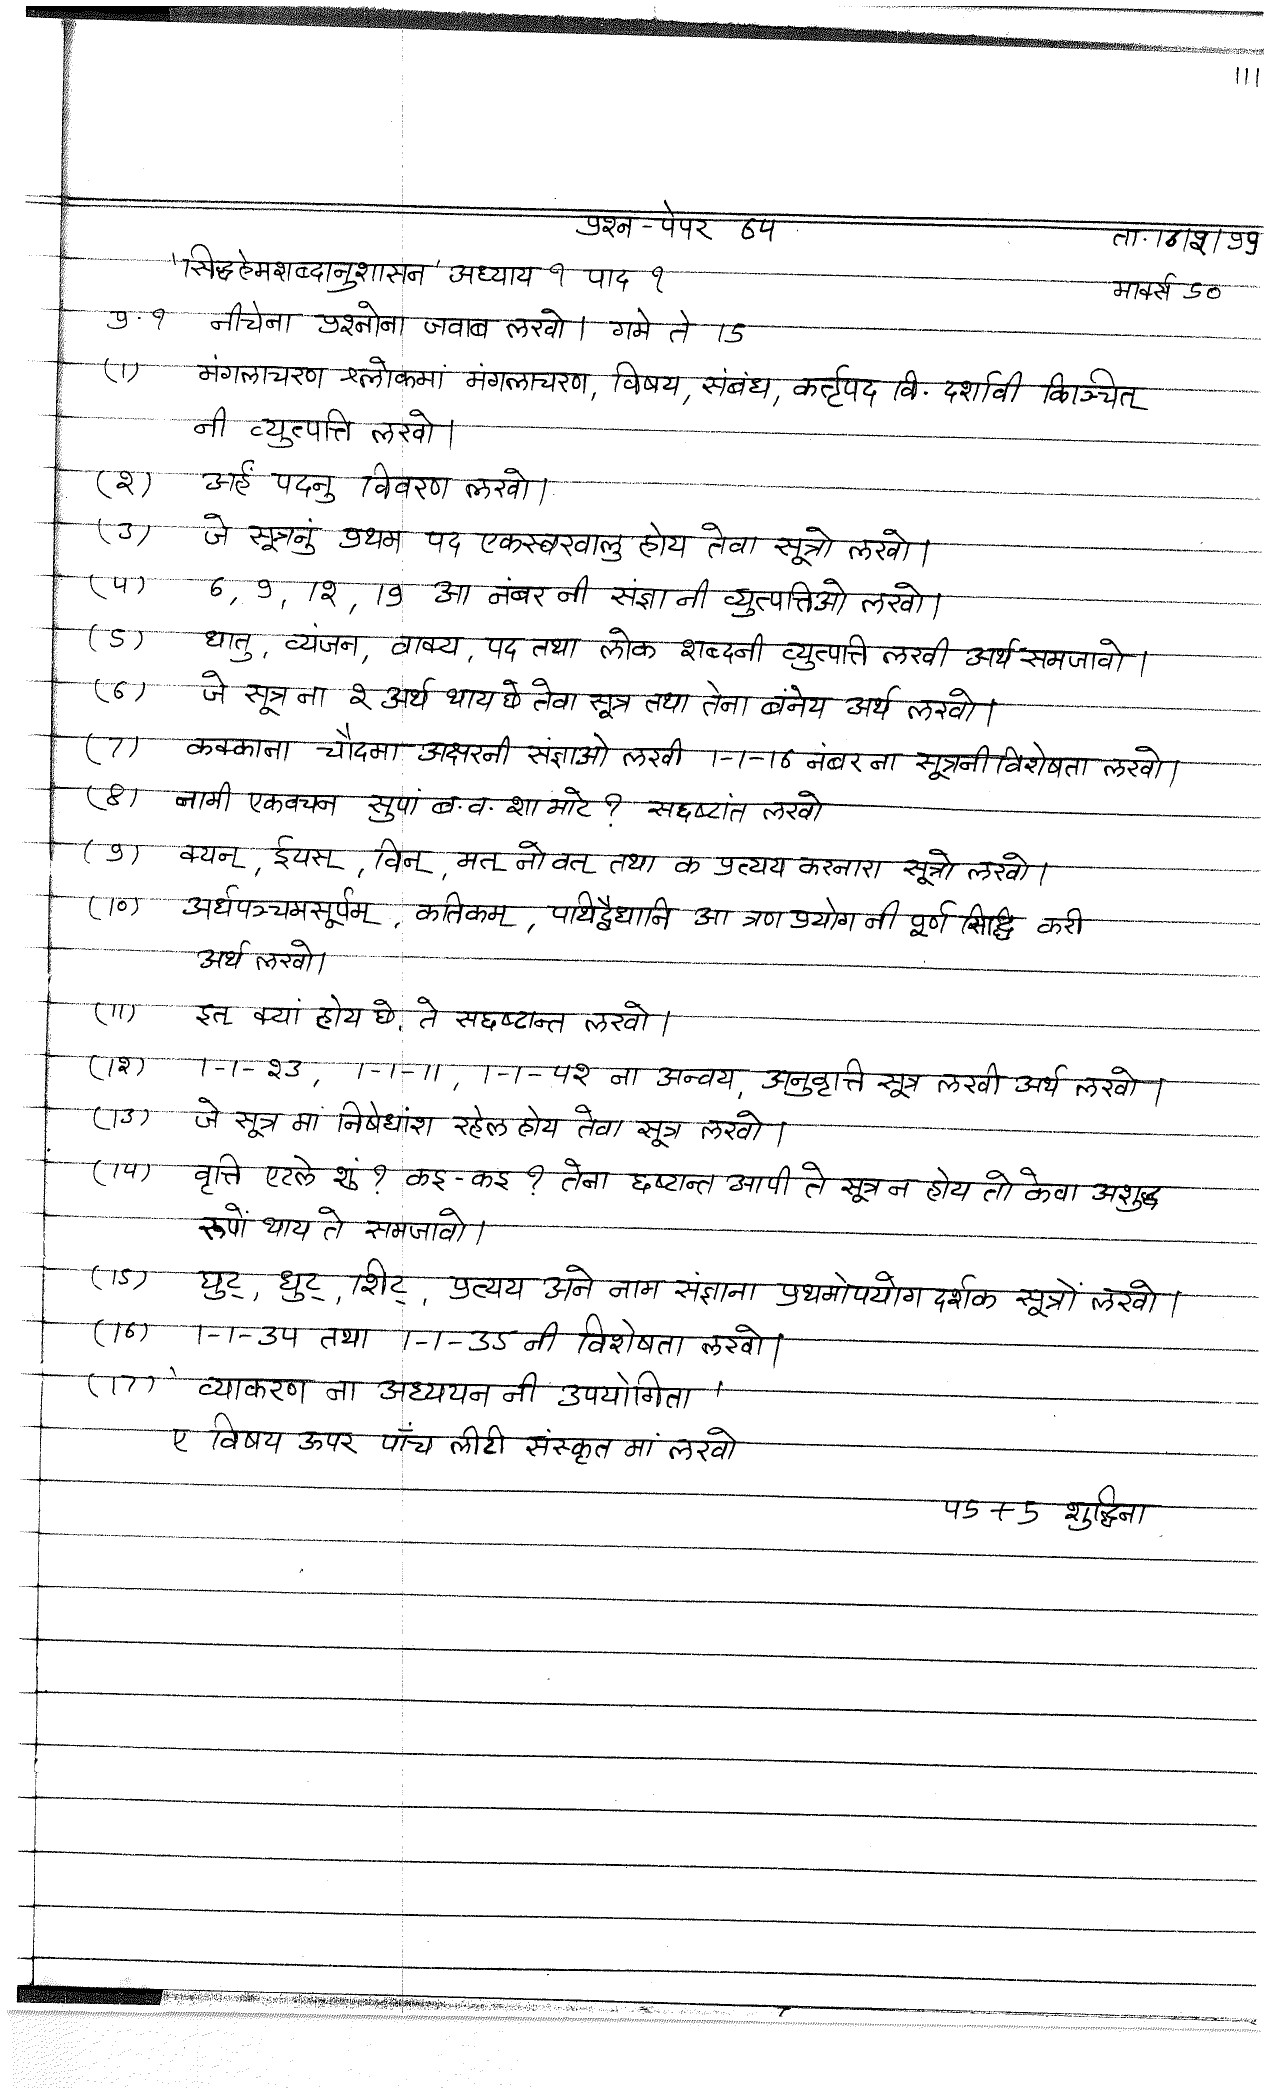 111
प्रश्न-पेपर ६५
ता.१८/२/99
'सिद्धहेमशब्दानुशासन' अध्याय १ पाद १
मार्क्स ५०
प्र.१ नीचेना प्रश्नोना जवाब लखो। गमे ते 1५
(1) मंगलाचरण श्लोकमां मंगलाचरण, विषय, संबंध, कर्तृपद वि. दर्शावी किञ्चित्
नी व्युत्पत्ति लखो।
(२) अर्हं पदनु विवरण लखो।
(3) जे सूत्रनुं प्रथम पद एकस्वरवालु होय तेवा सूत्रो लखो।
(४) 6, 9, 1२, 19 आ नंबर नी संज्ञा नी व्युत्पत्तिओ लखो।
(5) धातु, व्यंजन, वाक्य, पद तथा लोक शब्दनी व्युत्पत्ति लखी अर्थ समजावो।
(6) जे सूत्र ना २ अर्थ थाय छे तेवा सूत्र तथा तेना बंनेय अर्थ लखो।
(7) कक्काना चौदमा अक्षरनी संज्ञाओ लखी 1-1-16 नंबर ना सूत्रनी विशेषता लखो।
(8) नामी एकवचन सुपां ब.व. शा माटे? सदृष्टांत लखो
(9) क्यन्, ईयस्, विन्, मत् नो वत् तथा क प्रत्यय करनारा सूत्रो लखो।
(10) अर्धपञ्चमसूर्पम्, कतिकम्, पथिद्वैधानि आ त्रण प्रयोग नी पूर्ण सिद्धि करी
अर्थ लखो।
(11) इत् क्यां होय छे, ते सदृष्टान्त लखो।
(1२) 1-1-२3, 1-1-11, 1-1-४२ ना अन्वय, अनुवृत्ति सूत्र लखी अर्थ लखो।
(13) जे सूत्र मां निषेधांश रहेल होय तेवा सूत्र लखो।
(1४) वृत्ति एटले शुं? कइ-कइ? तेना दृष्टान्त आपी ते सूत्र न होय तो केवा अशुद्ध
रूपों थाय ते समजावो।
(15) घुट्, धुट्, शिट्, प्रत्यय अने नाम संज्ञाना प्रथमोपयोग दर्शक सूत्रों लखो।
(16) 1-1-3४ तथा 1-1-35 नी विशेषता लखो।
(17) 'व्याकरण ना अध्ययन नी उपयोगिता'
ए विषय ऊपर पाँच लीटी संस्कृत मां लखो
४5+5 शुद्धिना